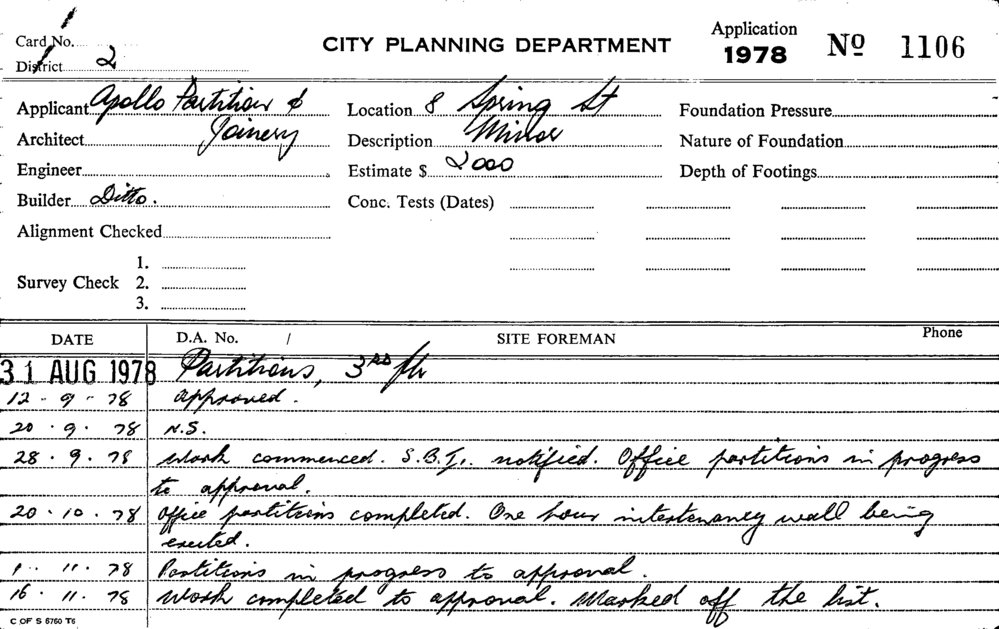 Card No. 1
District 2
CITY PLANNING DEPARTMENT
Application
1978
No 1106
Applicant Apollo Partition &
Joinery
Architect
Engineer
Builder Ditto.
Alignment Checked
Survey Check 1.
2.
3.
Location 8 Spring St
Description Minor
Estimate $ 2000
Conc. Tests (Dates)
Foundation Pressure
Nature of Foundation
Depth of Footings
DATE D.A. No. / SITE FOREMAN Phone
31 AUG 1978 Partitions, 3RD flr
12 - 9 - 78 approved.
20 . 9 . 78 N.S.
28 . 9 . 78 Work commenced. S.B.I. notified. Office partitions in progress
to approval.
20 . 10 . 78 Office partitions completed. One hour intertenancy wall being
erected.
1 . 11 . 78 Partitions in progress to approval.
16 . 11 . 78 Work completed to approval. Marked off the list.
C OF S 5760 T6